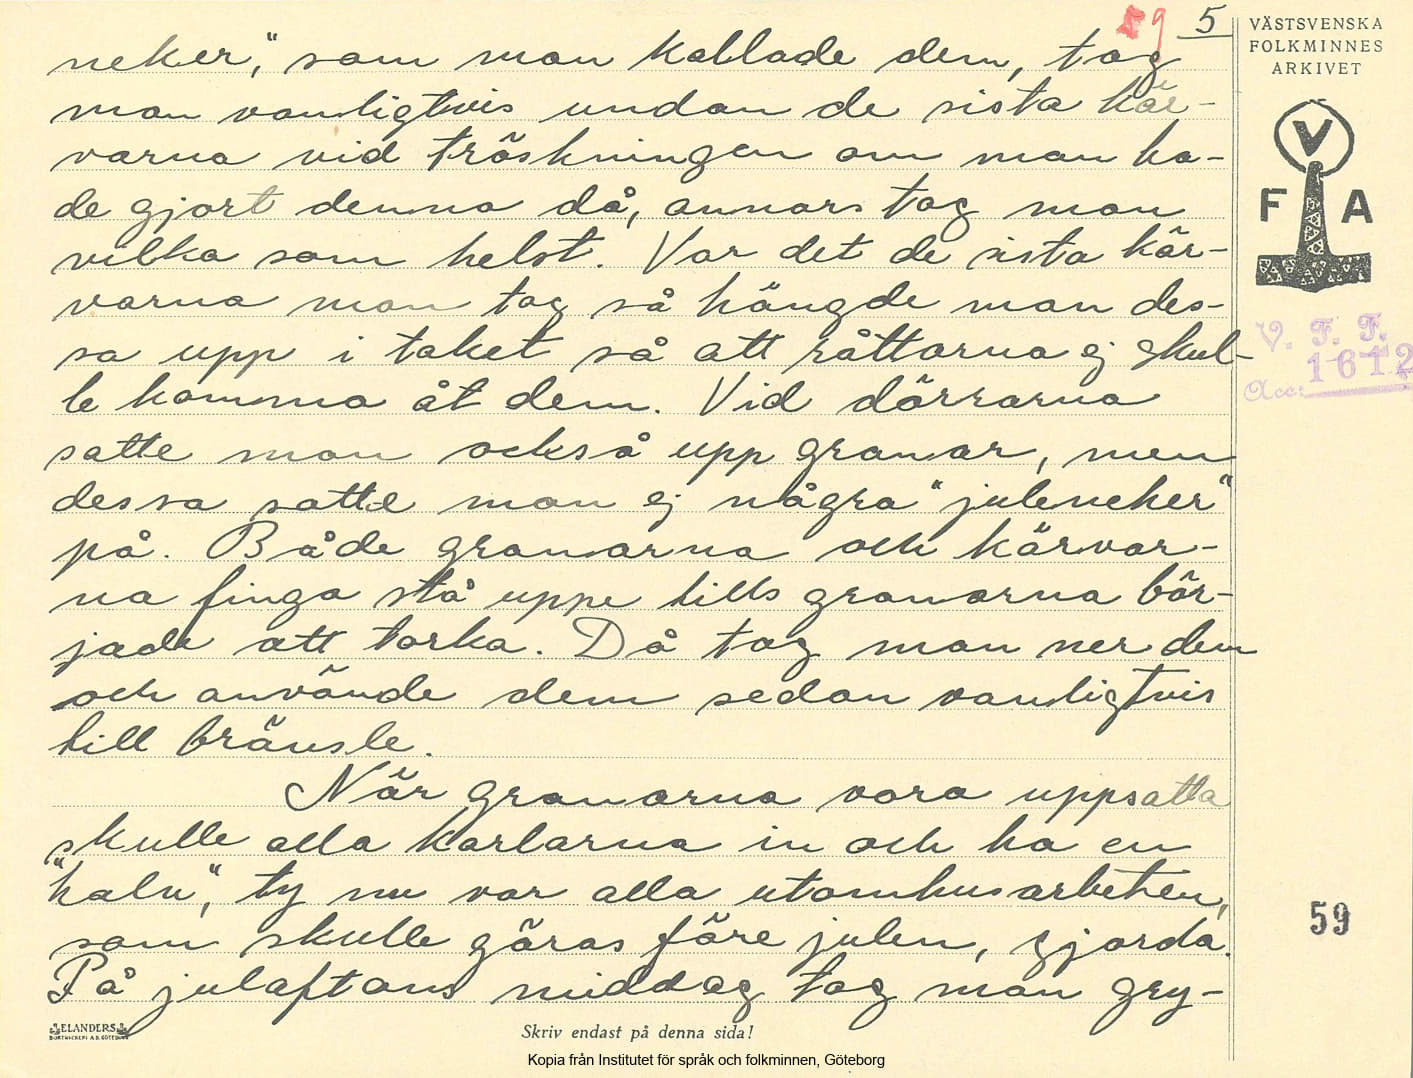 59 5
VÄSTSVENSKA
FOLKMINNES
ARKIVET
V
F A
V. F. F.
Acc: 1612
neker", som man kallade dem, tog
man vanligtvis undan de sista kär-
varna vid tröskningen om man ha-
de gjort denna då, annars tog man
vilka som helst. Var det de sista kär-
varna man tog så hängde man des-
sa upp i taket så att råttorna ej skul-
le komma åt dem. Vid dörrarna
satte man också upp granar, men
dessa satte man ej några "juleneker"
på. Både granarna och kärvar-
na finga stå uppe tills granarna bör-
jade att torka. Då tog man ner dem
och använde dem sedan vanligtvis
till bränsle.
När granarna voro uppsatta
skulle alla karlarna in och ha en
"halv", ty nu var alla utomhusarbeten,
som skulle göras före julen, gjorda.
På julaftons middag tog man gry-
59
ELANDERS
BOKTRYCKERI A.B. GÖTEBORG
Skriv endast på denna sida!
Kopia från Institutet för språk och folkminnen, Göteborg